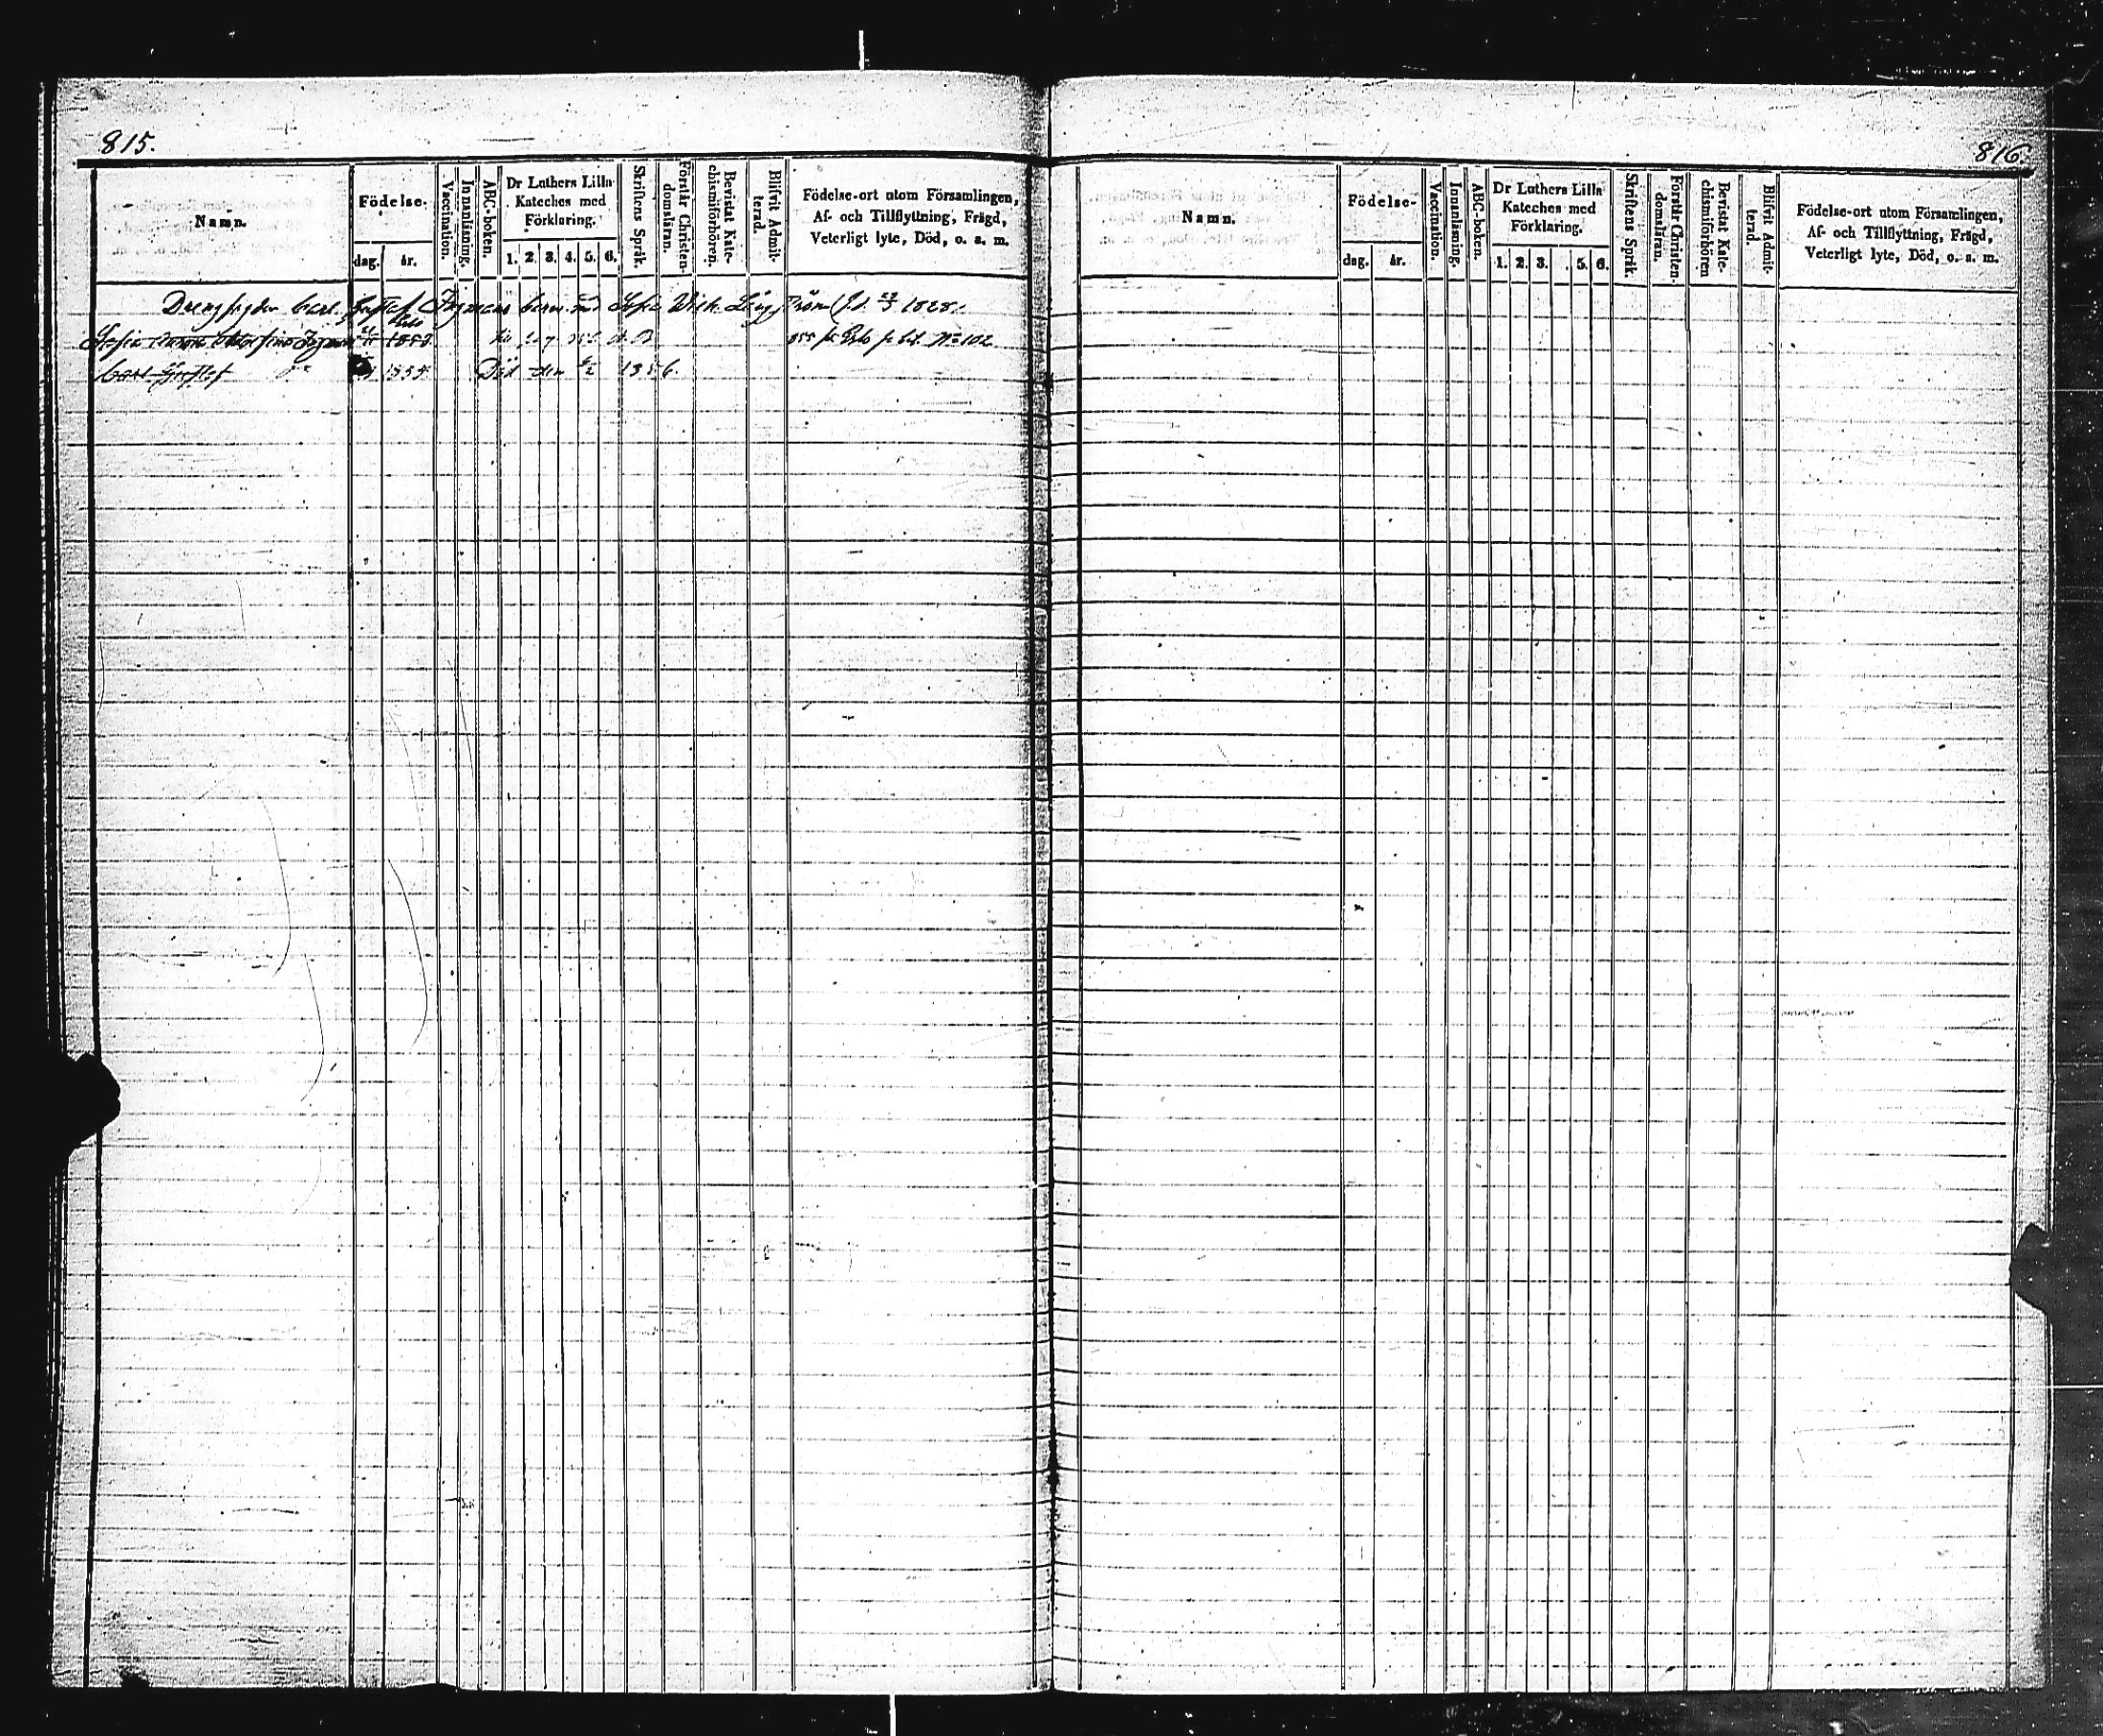 815.
Namn.
Födelse.
dag.
år.
Vaccination.
Innanläsning.
ABC-boken.
Dr Luthers Lilla
Kateches med
Förklaring.
1. 2. 3. 4. 5. 6.
Skriftens Språk.
Förstår Christen-
domsläran.
Bevistat Kate-
chismiförhören.
Blifvit Admit-
terad.
Födelse-ort utom Församlingen,
Af- och Tillflyttning, Frägd,
Veterligt lyte, Död, o. s. m.
Carl Gustaf barn med Sofia Wilh. 1828.
Sofia No 102
Carl Gustaf Död den 1856.
816.
Namn.
Födelse-
dag.
år.
Vaccination.
Innanläsning.
ABC-boken.
Dr Luthers Lilla
Kateches med
Förklaring.
1. 2. 3. . 5. 6.
Skriftens Språk.
Förstår Christen-
domsläran.
Bevistat Kate-
chismiförhören
Blifvit Admit-
terad.
Födelse-ort utom Församlingen,
Af- och Tillflyttning, Frägd,
Veterligt lyte, Död, o. s. m.